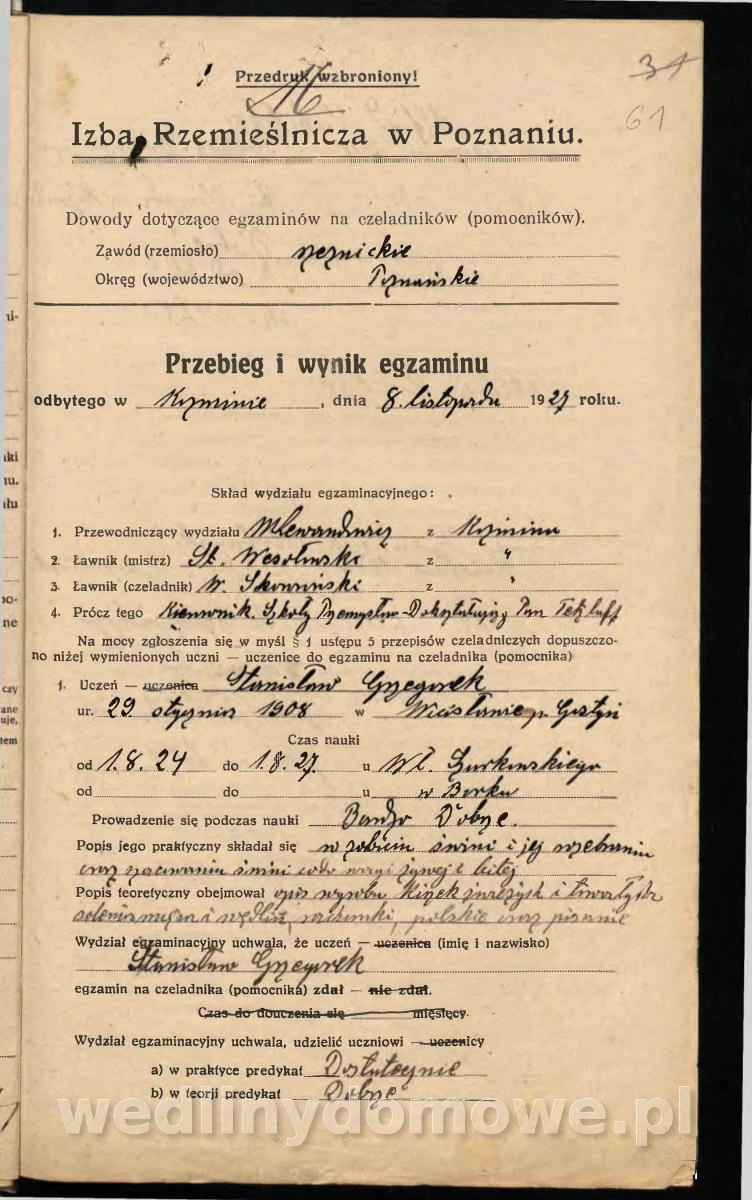 Przedruk wzbroniony!
31
61
Izba Rzemieślnicza w Poznaniu.
Dowody dotyczące egzaminów na czeladników (pomocników).
Zawód (rzemiosło) rzeźnickie
Okręg (województwo) Poznańskie
Przebieg i wynik egzaminu
odbytego w Koźminie, dnia 8. listopada 1927 roku.
Skład wydziału egzaminacyjnego:
1. Przewodniczący wydziału z Koźmina
2. Ławnik (mistrz) St. Wesołowski z "
3. Ławnik (czeladnik) W. z "
4. Prócz tego Kierownik Szkoły Pan
Na mocy zgłoszenia się w myśl § 1 ustępu 5 przepisów czeladniczych dopuszczo-
no niżej wymienionych uczni — uczenice do egzaminu na czeladnika (pomocnika)
1. Uczeń — uczenica Stanisław Grzegorek
ur. 29 stycznia 1908 w p. Gostyń
Czas nauki
od 1.8.24 do 1.8.27. u Wł. Żurkowskiego
od do u w Borku
Prowadzenie się podczas nauki Bardzo Dobrze.
Popis jego praktyczny składał się w zabiciu świni i jej rozebraniu
oraz szacowaniu świni co do wagi żywej i bitej
Popis teoretyczny obejmował opis wyrobu kiszek i
solenia mięsa i wędlin, rachunki, polskie oraz pisanie
Wydział egzaminacyjny uchwala, że uczeń — uczenica (imię i nazwisko)
Stanisław Grzegorek
egzamin na czeladnika (pomocnika) zdał — nie zdał.
Czas do douczenia się miesięcy.
Wydział egzaminacyjny uchwala, udzielić uczniowi — uczenicy
a) w praktyce predykat Dostatecznie
b) w teorji predykat Dobrze
wedlinydomowe.pl